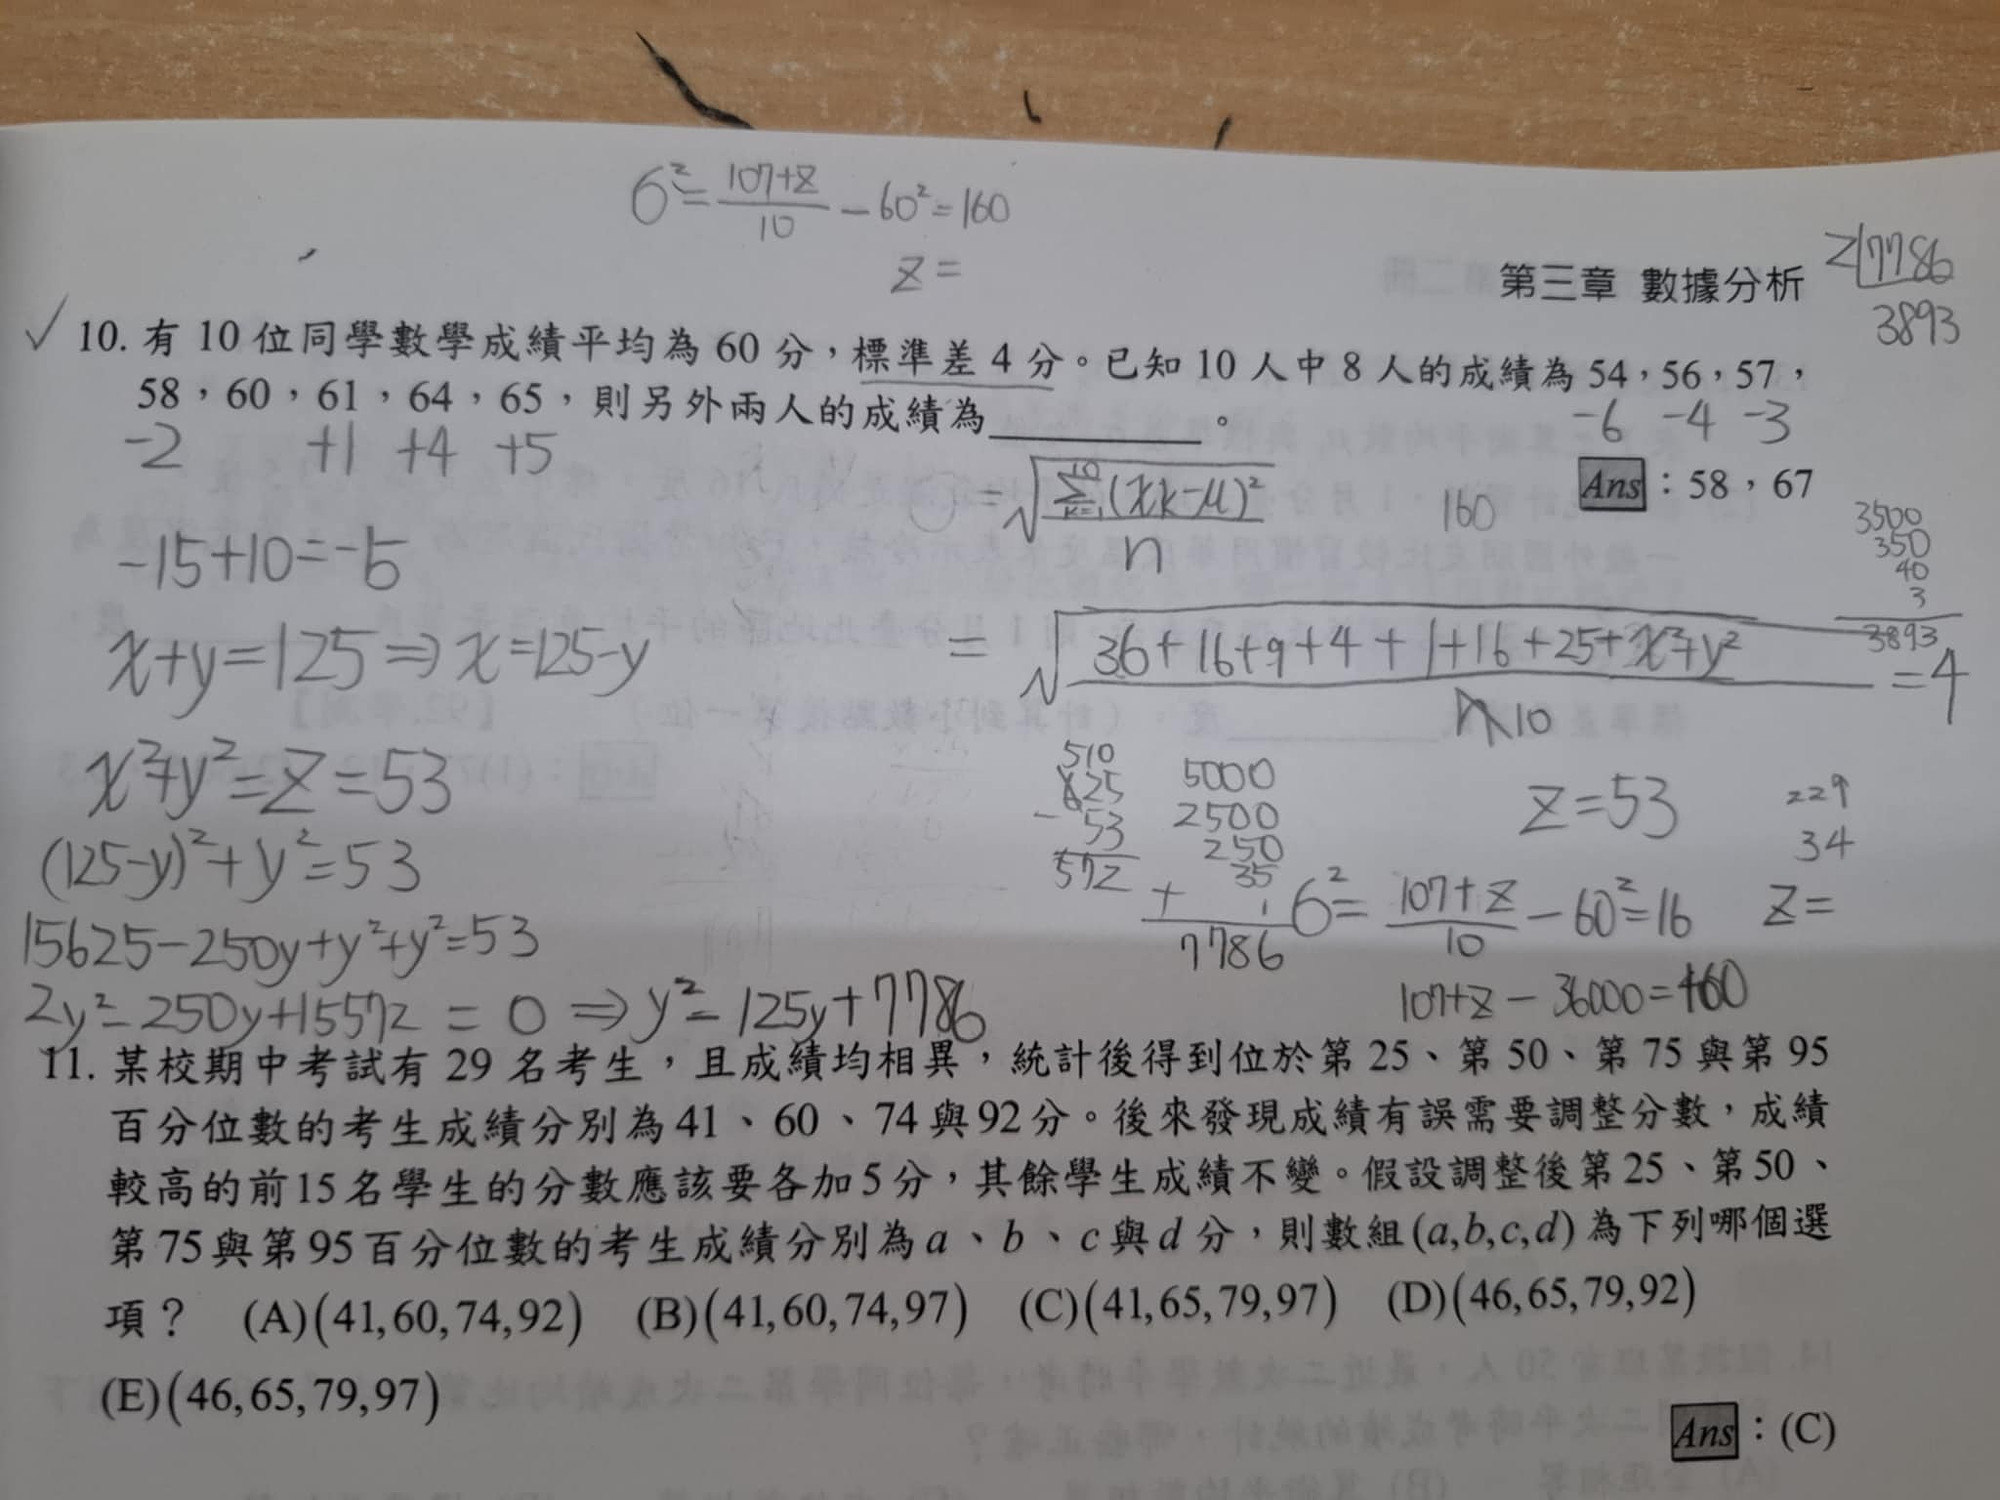 6²=(107+Z)/10 -60²=160
Z=
第三章 數據分析
2|7786
3893
✓10. 有 10 位同學數學成績平均為 60 分，標準差 4 分。已知 10 人中 8 人的成績為 54，56，57，
58，60，61，64，65，則另外兩人的成績為________。
-6 -4 -3
-2 +1 +4 +5
Ans：58，67
=√(Σ(xk-μ)²/n)
k=1
10
160
3500
350
40
3
3893
-15+10=-5
x+y=125⇒x=125-y
=√((36+16+9+4+1+16+25+x²+y²)/10)=4
x²+y²=Z=53
510
625
-53
572
5000
2500
250
35
+ 1
7786
Z=53
229
34
(125-y)²+y²=53
6²=(107+Z)/10 -60²=16
Z=
15625-250y+y²+y²=53
2y²-250y+15572=0⇒y²-125y+7786
107+Z-36000=160
11. 某校期中考試有 29 名考生，且成績均相異，統計後得到位於第 25、第 50、第 75 與第 95
百分位數的考生成績分別為 41、60、74 與 92 分。後來發現成績有誤需要調整分數，成績
較高的前 15 名學生的分數應該要各加 5 分，其餘學生成績不變。假設調整後第 25、第 50、
第 75 與第 95 百分位數的考生成績分別為 a、b、c 與 d 分，則數組 (a,b,c,d) 為下列哪個選
項？ (A)(41,60,74,92) (B)(41,60,74,97) (C)(41,65,79,97) (D)(46,65,79,92)
(E)(46,65,79,97)
Ans：(C)